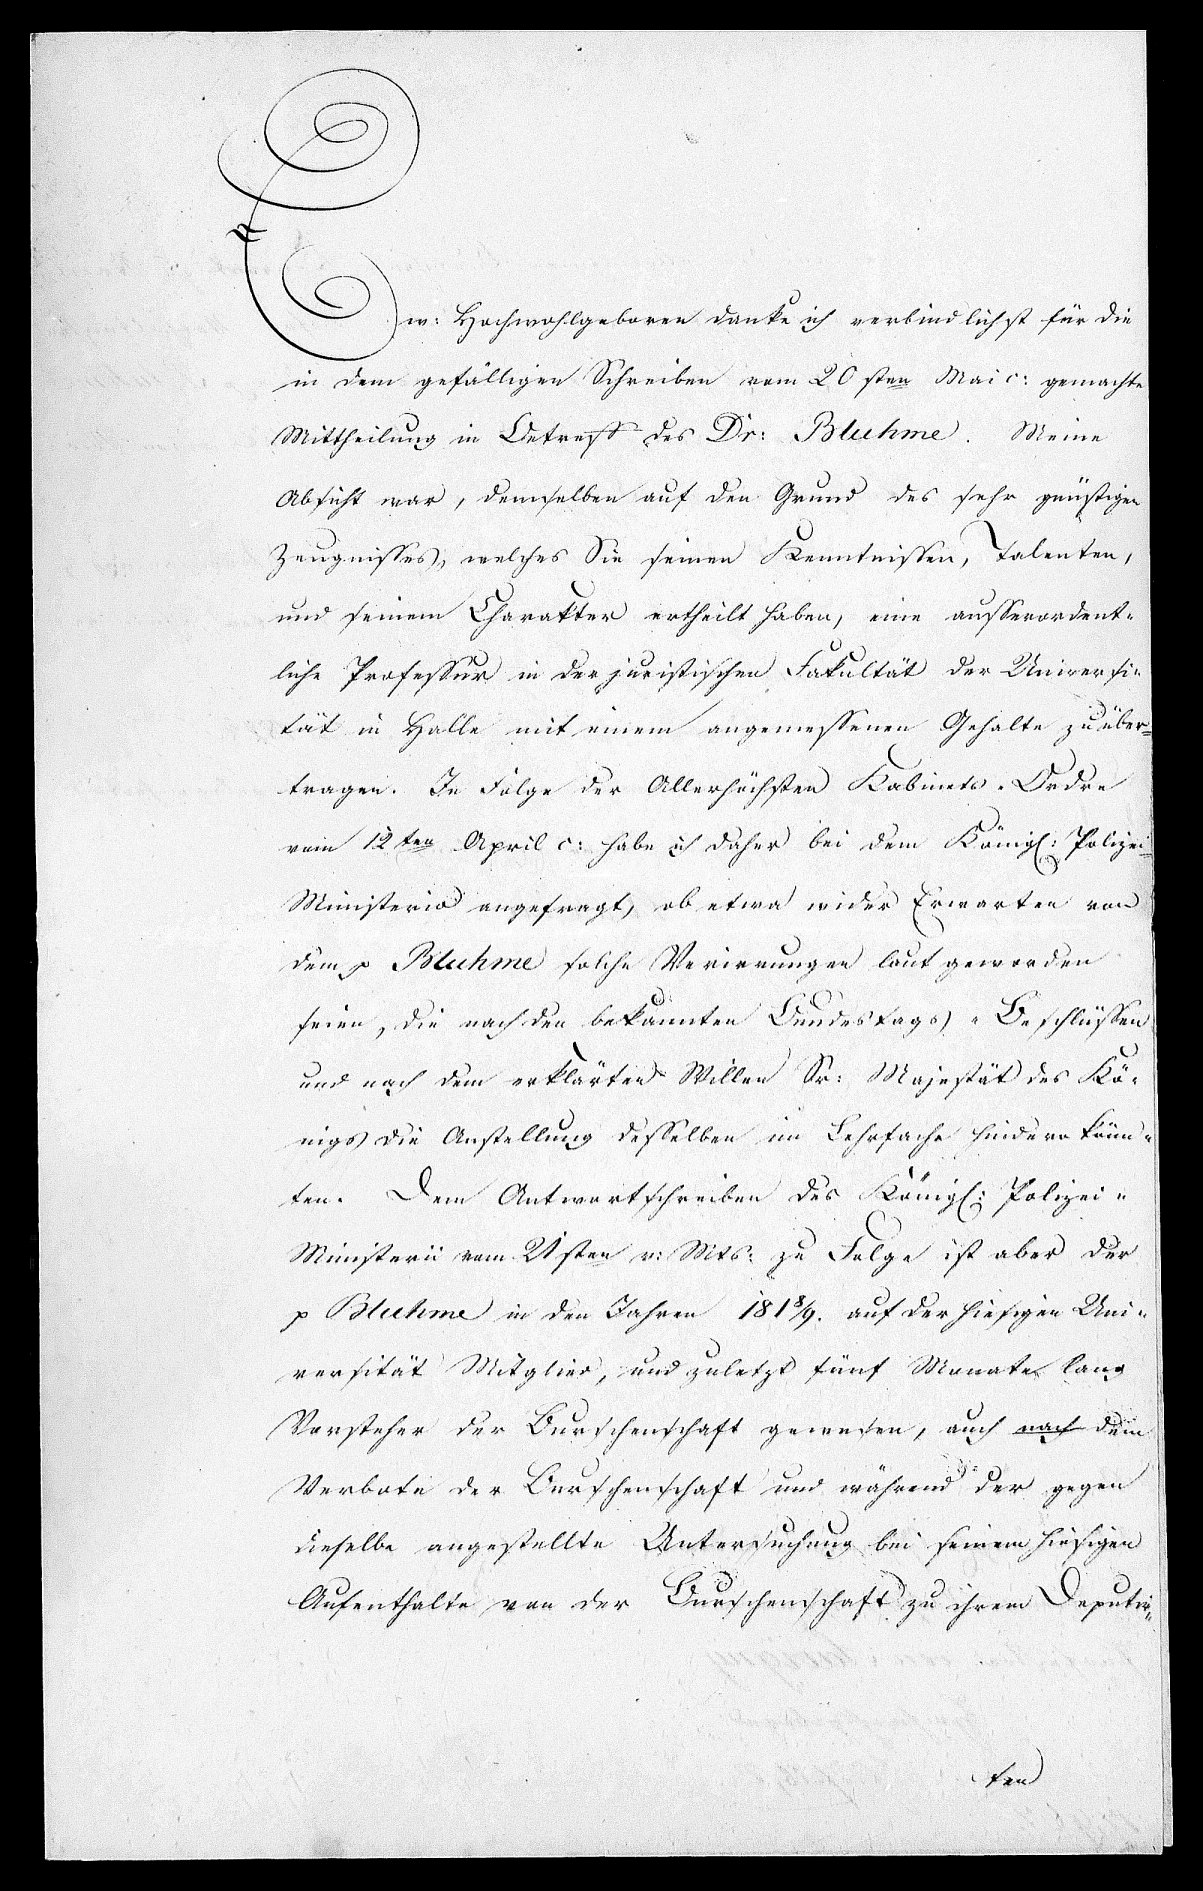 Ew: Hochwohlgeboren danke ich verbindlichst für die
in dem gefälligen Schreiben vom 20sten Mai c: gemachte
Mittheilung in Betreff des Dr: Bluhme. Meine
Absicht war, demselben auf den Grund des sehr günstigen
Zeugnisses, welches Sie seinen Kenntnissen, Talenten,
und seinem Charakter ertheilt haben, eine ausserordent-
liche Professur in der juristischen Fakultät der Universi-
tät in Halle mit einem angemessenen Gehalte zu über-
tragen. In Folge der Allerhöchsten Kabinets-Ordre
vom 12ten April c: habe ich daher bei dem Königl: Polizei-
Ministerio angefragt, ob etwa wider Erwarten von
dem p Bluhme solche Verirrungen laut geworden
seien, die nach den bekannten Bundestags-Beschlüssen
und nach dem erklärten Willen Sr: Majestät des Kö-
nigs die Anstellung desselben im Lehrfache hindern könn-
ten. Dem Antwortschreiben des Königl: Polizei-
Ministerii vom 21sten v: Mts: zu Folge ist aber der
p Bluhme in den Jahren 1818/9. auf der hiesigen Uni-
versität Mitglied, und zuletzt fünf Monate lang
Vorsteher der Burschenschaft gewesen, auch nach dem
Verbote der Burschenschaft und während der gegen
dieselbe angestellte Untersuchung bei seinem hiesigen
Aufenthalte von der Burschenschaft zu ihrem Deputir-
ten